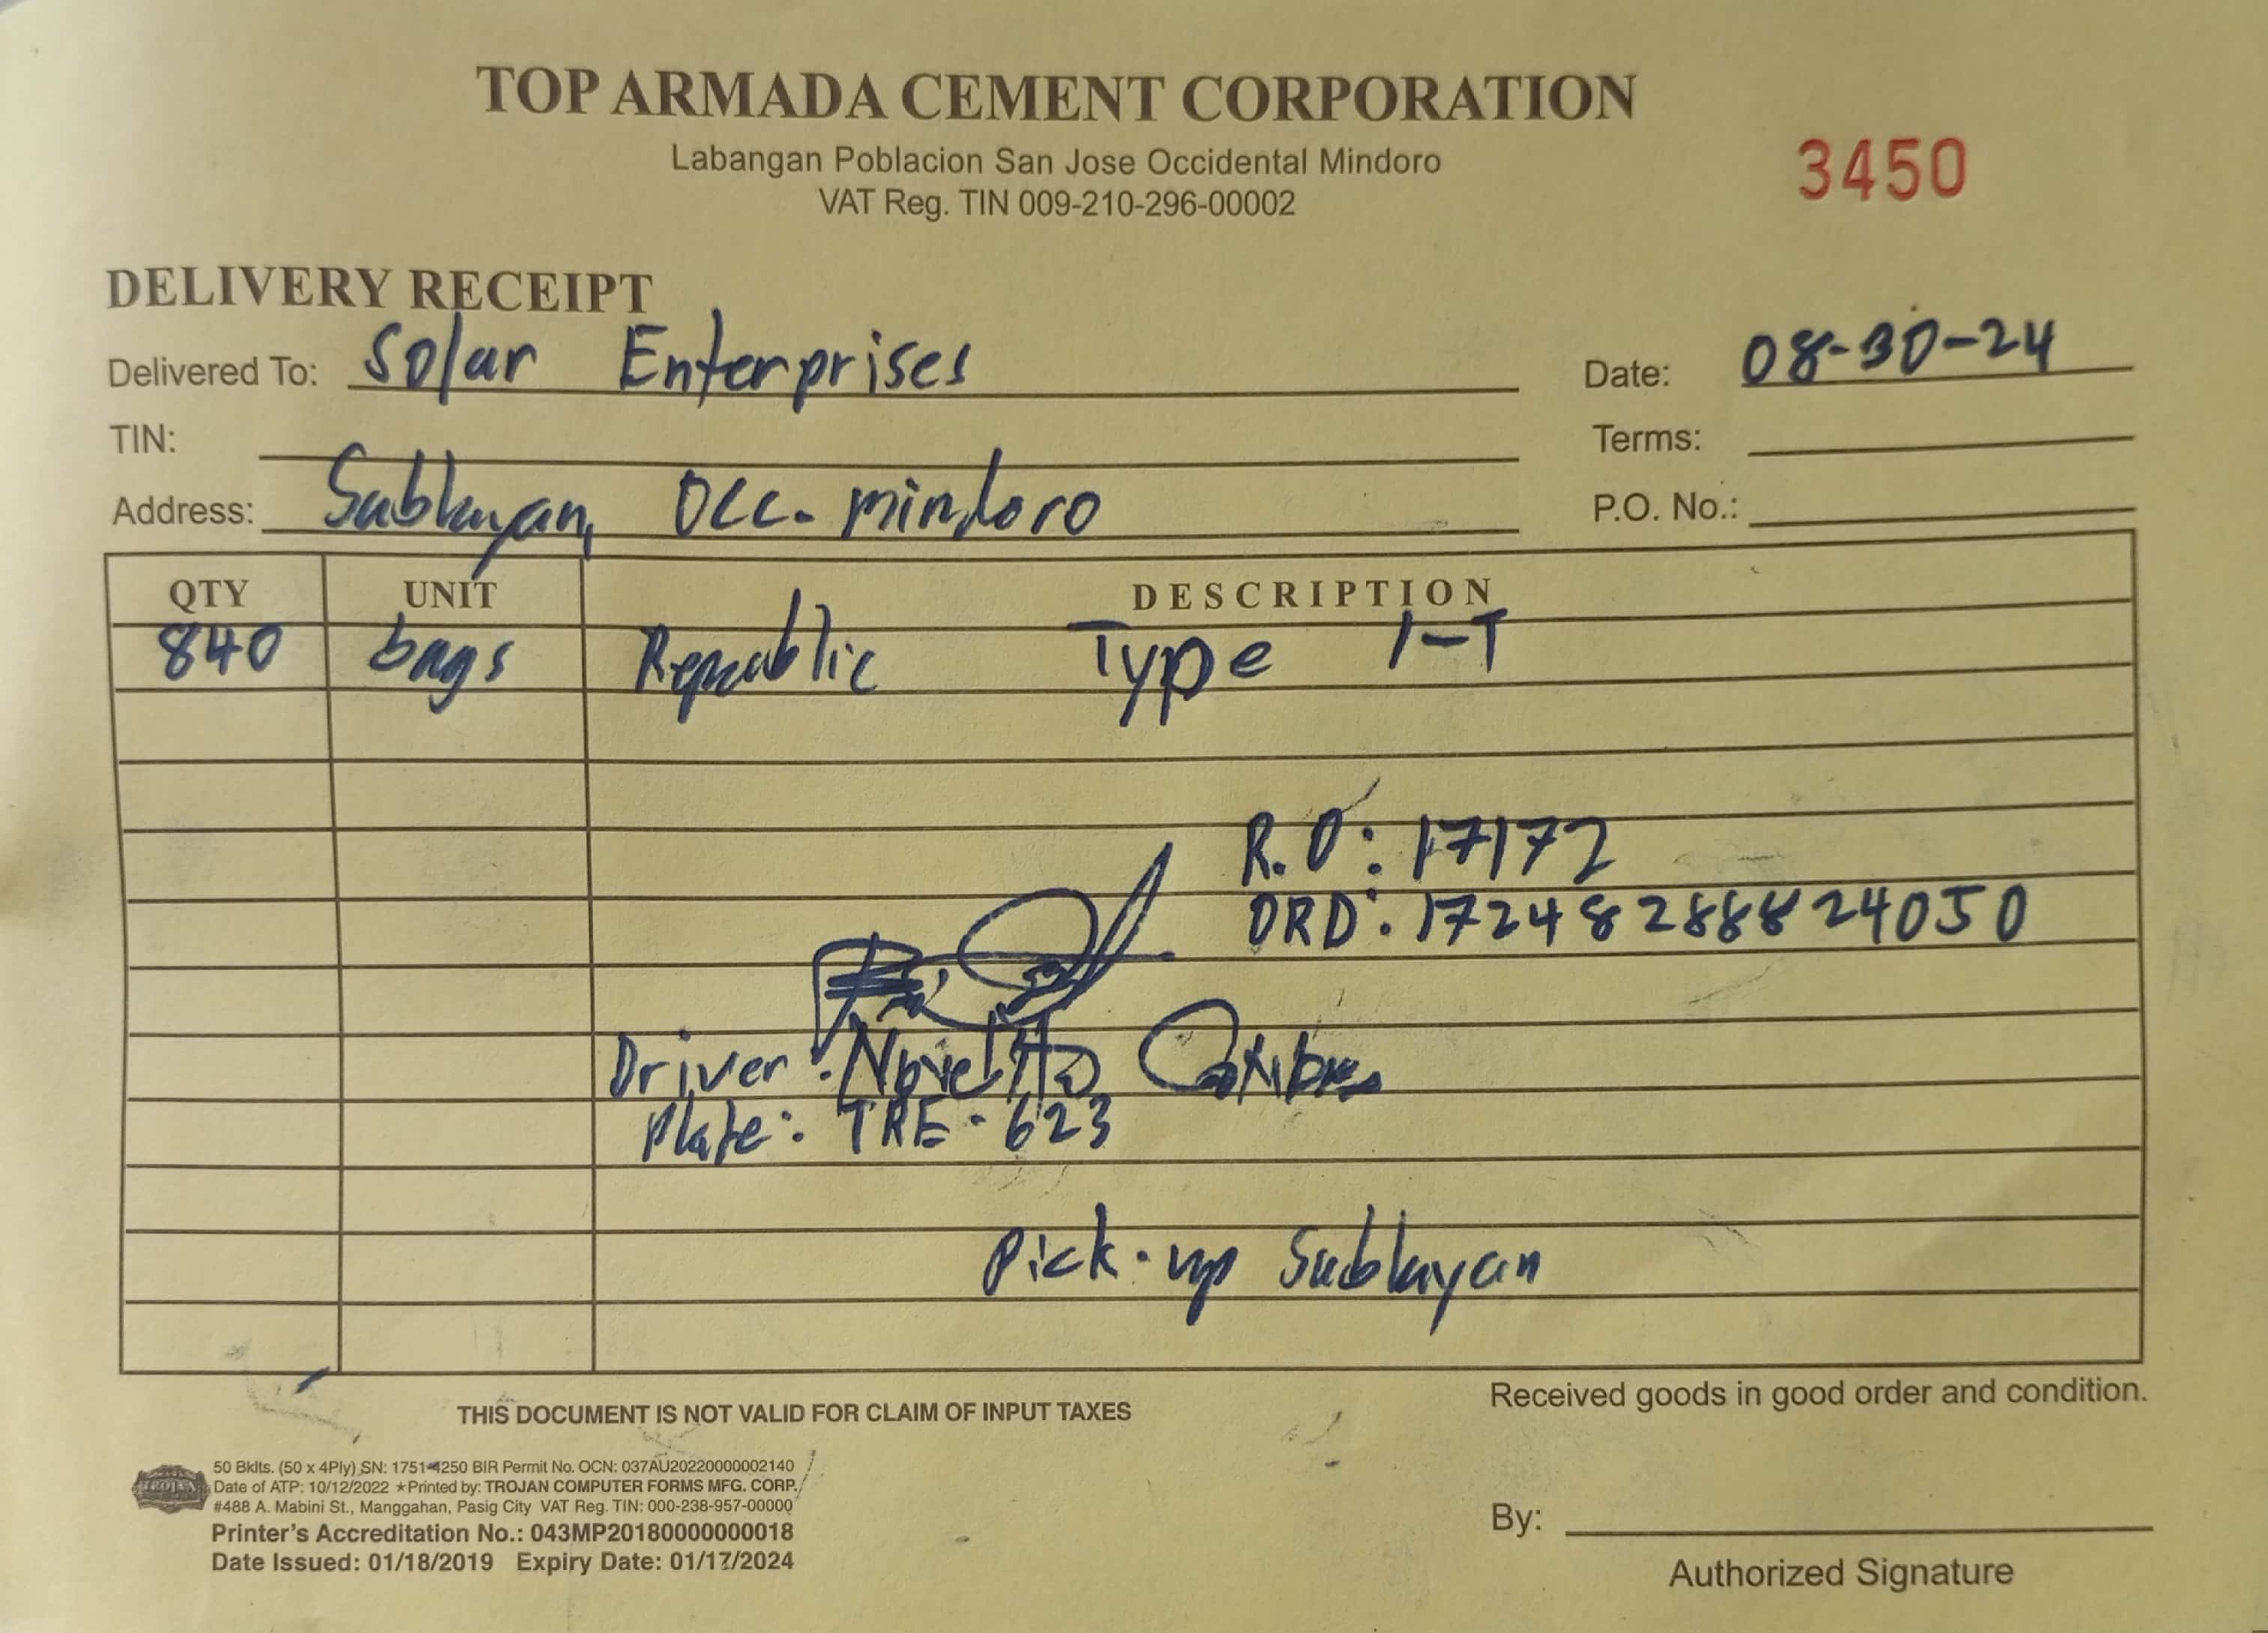 TOP ARMADA CEMENT CORPORATION
Labangan Poblacion San Jose Occidental Mindoro
VAT Reg. TIN 009-210-296-00002
3450
DELIVERY RECEIPT
Delivered To: Solar Enterprises
Date: 08-30-24
TIN:
Terms:
Address: Sablayan, Occ. mindoro
P.O. No.:
QTY UNIT DESCRIPTION
840 bags Republic Type 1-T
R.O: 17172
ORD: 17248288824050
Driver: Novelito
Plate: TRE-623
Pick-up Sablayan
THIS DOCUMENT IS NOT VALID FOR CLAIM OF INPUT TAXES
Received goods in good order and condition.
TROJAN
50 Bklts. (50 x 4Ply) SN: 1751-4250 BIR Permit No. OCN: 037AU20220000002140
Date of ATP: 10/12/2022 ★Printed by: TROJAN COMPUTER FORMS MFG. CORP.
#488 A. Mabini St., Manggahan, Pasig City VAT Reg. TIN: 000-238-957-00000
Printer's Accreditation No.: 043MP20180000000018
Date Issued: 01/18/2019 Expiry Date: 01/17/2024
By:
Authorized Signature